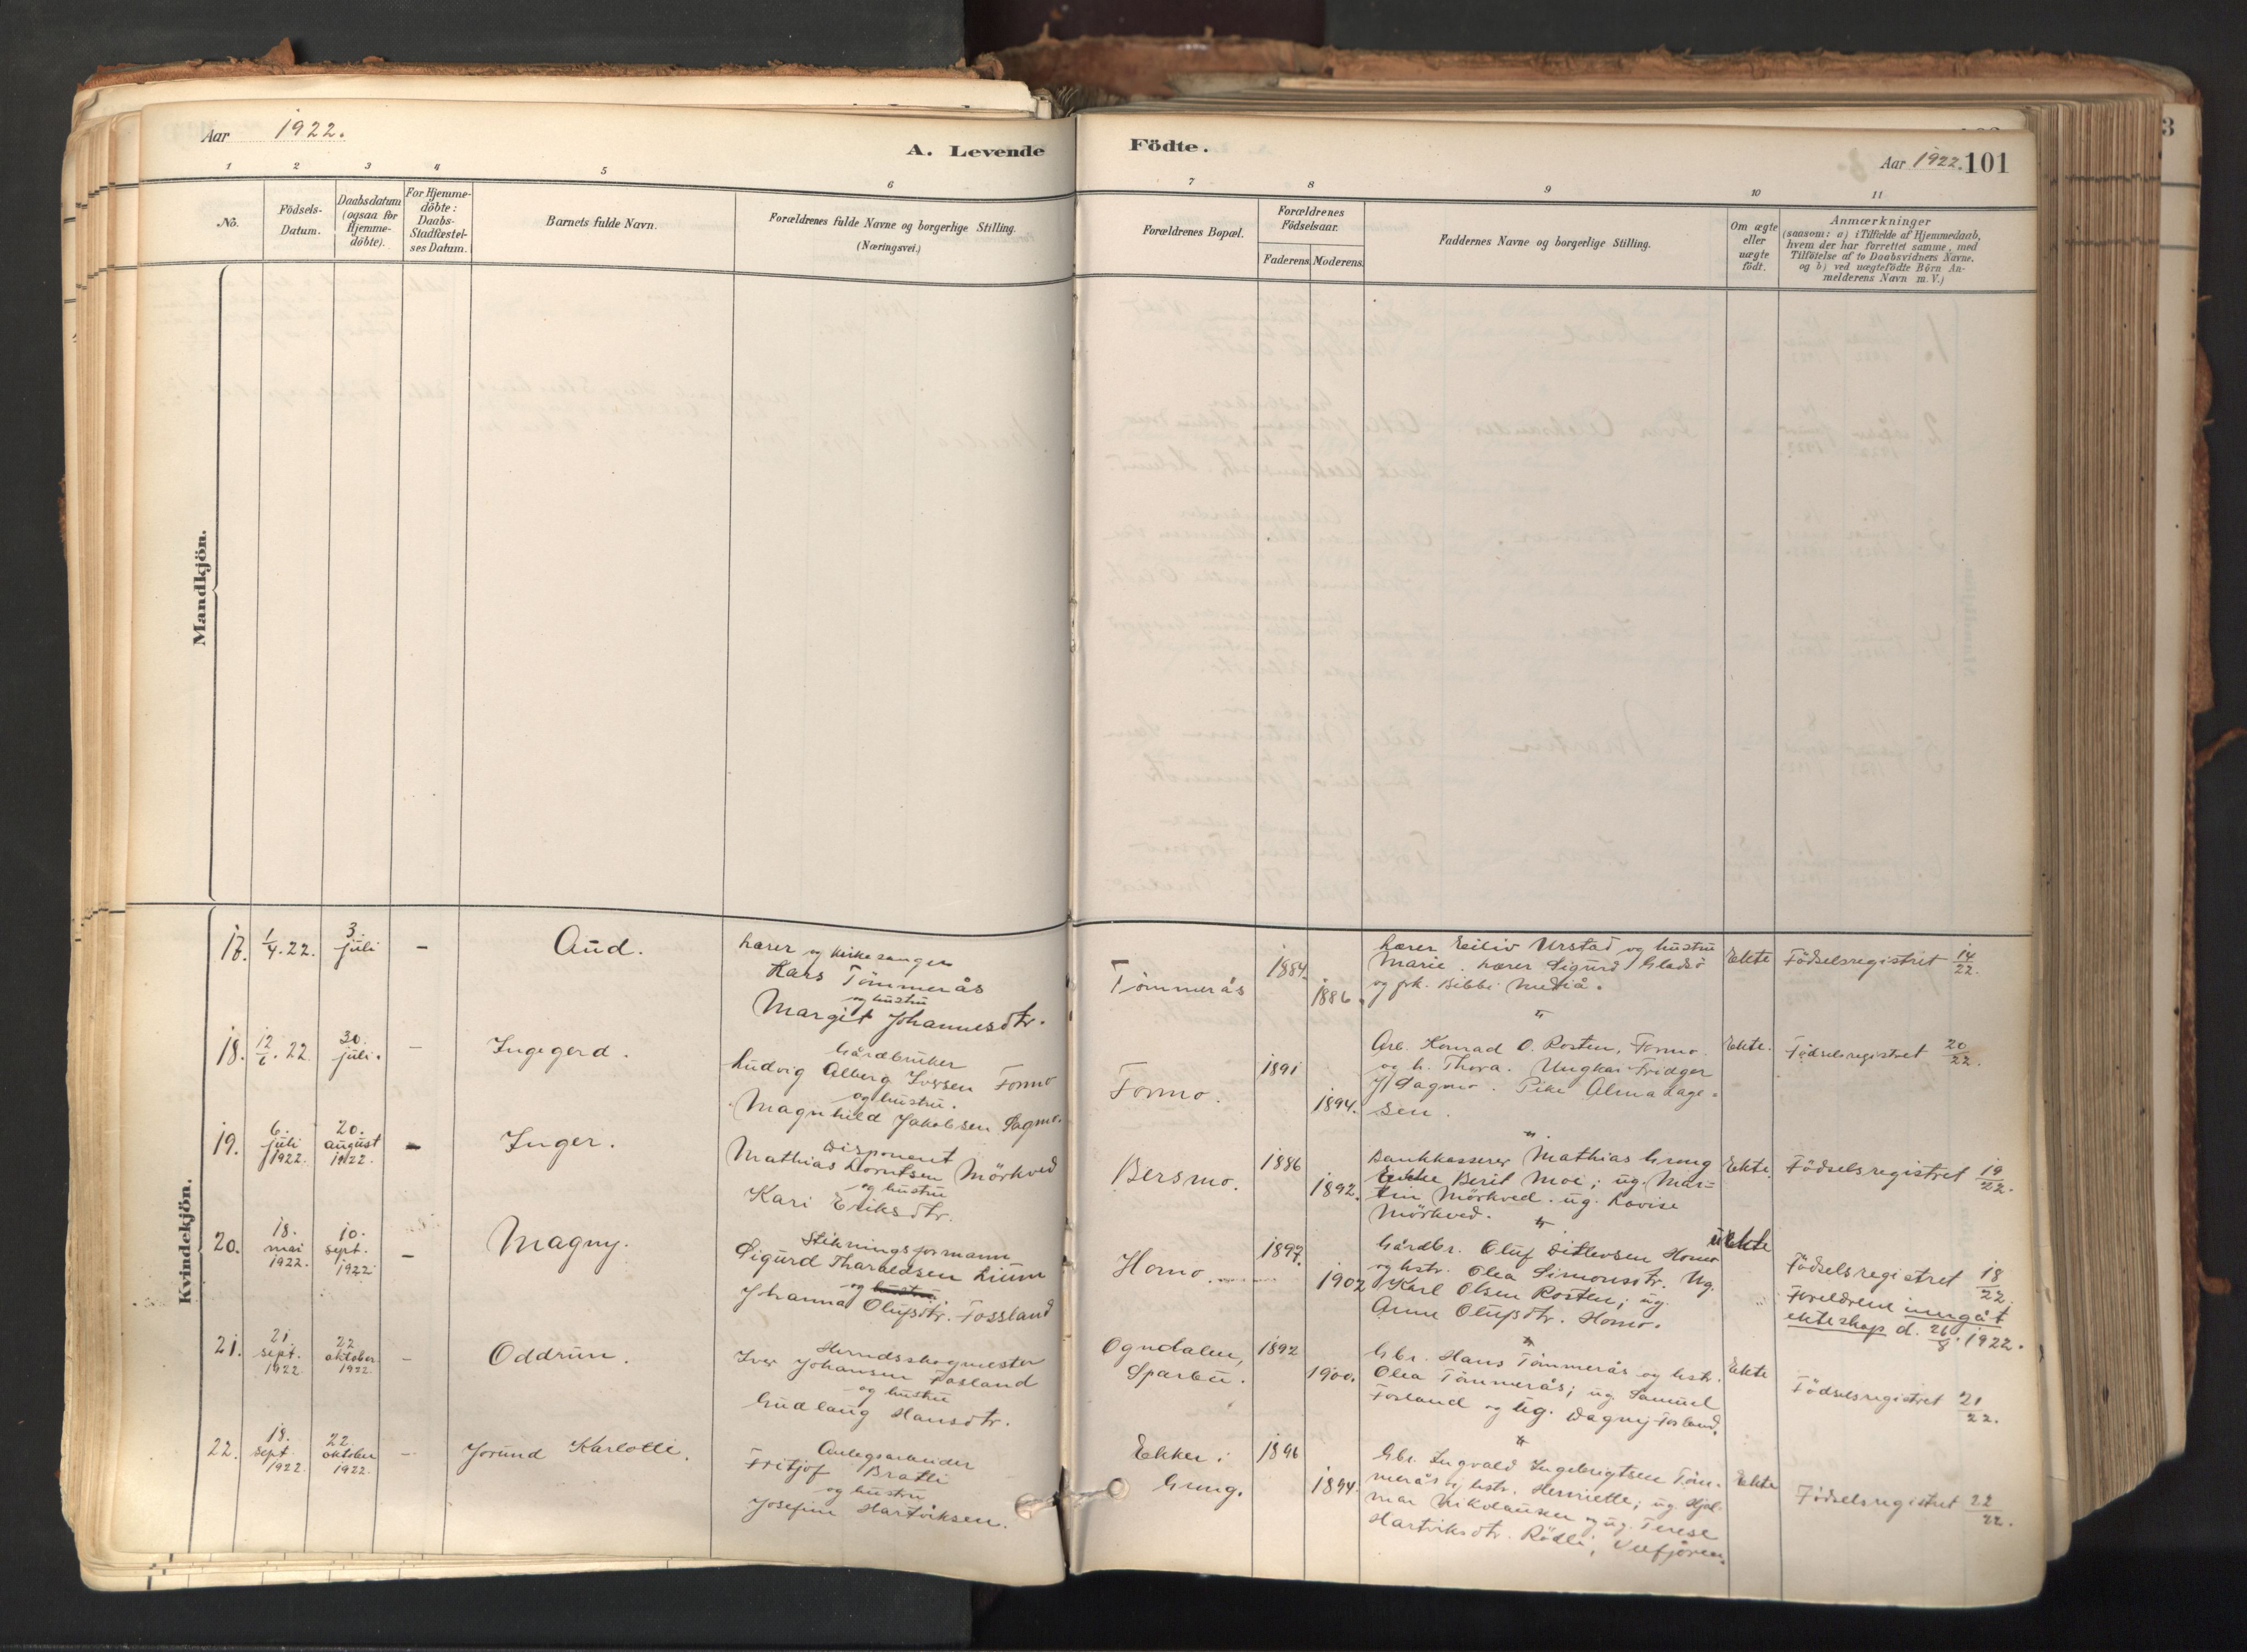 Aar 1922.
A. Levende
Födte.
Aar 1922. 101
1 2 3 4 5 6 7 8 9 10 11
No.
Födsels-
Datum.
Daabsdatum
(ogsaa for
Hjemme-
döbte).
For Hjemme-
döbte:
Daabs-
Stadfæstel-
ses Datum.
Barnets fulde Navn.
Forældrenes fulde Navne og borgerlige Stilling.
(Næringsvei.)
Forældrenes Bopæl.
Forældrenes
Födselsaar.
Faderens. Moderens.
Faddernes Navne og borgerlige Stilling.
Om ægte
eller
uægte
födt.
Anmærkninger
(saasom: a) i Tilfælde af Hjemmedaab,
hvem der har forrettet samme, med
Tilföielse af to Daabsvidners Navne.
og b) ved uægtefödte Börn An-
melderens Navn m. V.)
Mandkjön.
Kvindekjön.
17. 1/4. 22. 3. juli – Aud.
Lærer og kirkesanger
Lars Tömmerås
og hustru
Margit Johannesdtr.
Tömmerås
1884.
1886.
Lærer Eiliv Urstad og hustru
Marie. Lærer Sigurd Gladsö
og frk. Bibbi Mediå.
Ekte
Födselsregistret 14/22.
18. 12/6. 22. 30. juli. – Ingegerd.
Gårdbruker
Ludvig Alberg Iversen Formo
og hustru.
Magnhild Jakobsen Dagmo.
Formo.
1891
1894.
Arb. Konrad O. Rosten, Formo.
og h. Thora. Ungkar Fridger
J. Dagmo. Pike Alma Lage=
sen.
Ekte.
Födselsregistret 20/22.
19. 6. juli 1922. 20. august 1922. – Inger.
Disponent
Mathias Lorntsen Mörkved
og hustru
Kari Eriksdtr.
Bersmo.
1886
1892.
Bankkasserer Mathias Grong
Enke Berit Moe; ug. Mar=
tin Mörkved. ug. Lovise
Mörkved.
Ekte.
Födselsregistret 19/22.
20. 18. mai 1922. 10. sept. 1922 – Magny.
Stikningsformann
Sigurd Tharaldsen Lium
og hustru.
Johanna Olufsdtr. Fossland
Homo.
1897.
1902
Gårdbr. Oluf Ditlevsen Homo
og hstr. Olea Simonsdtr. Ug.
Karl Olsen Rosten; ug.
Anne Olufsdtr. Homo.
uekte
Födselsregistret 18/22.
Foreldrene inngåt
ekteskap d. 26/8. 1922.
21. 21. sept. 1922 22 oktober 1922 – Oddrun.
Herredsskogmester
Iver Johansen Fosland
og hustru
Gudlaug Hansdtr.
Ogndalen,
Sparbu.
1892
1900.
Gbr. Hans Tömmerås og hstr.
Olea Tömmerås; ug. Samuel
Fosland og ug. Dagny Fosland.
Ekte
Födselsregistret 21/22.
22. 18. sept. 1922 22. oktober 1922. – Jorund Karlotte.
Anlegsarbeider
Fritjof Bratli
og hustru
Josefine Hartviksen.
Ekker i
Grong.
1896
1894.
Gbr. Ingvald Ingebrigtsen Töm-
merås og hstr. Henriette; ug. Hjal-
mar Nikolausen og ug. Terese
Hartviksdtr. Rödli, Velfjorden.
Ekte
Födselsregistret 22/22.